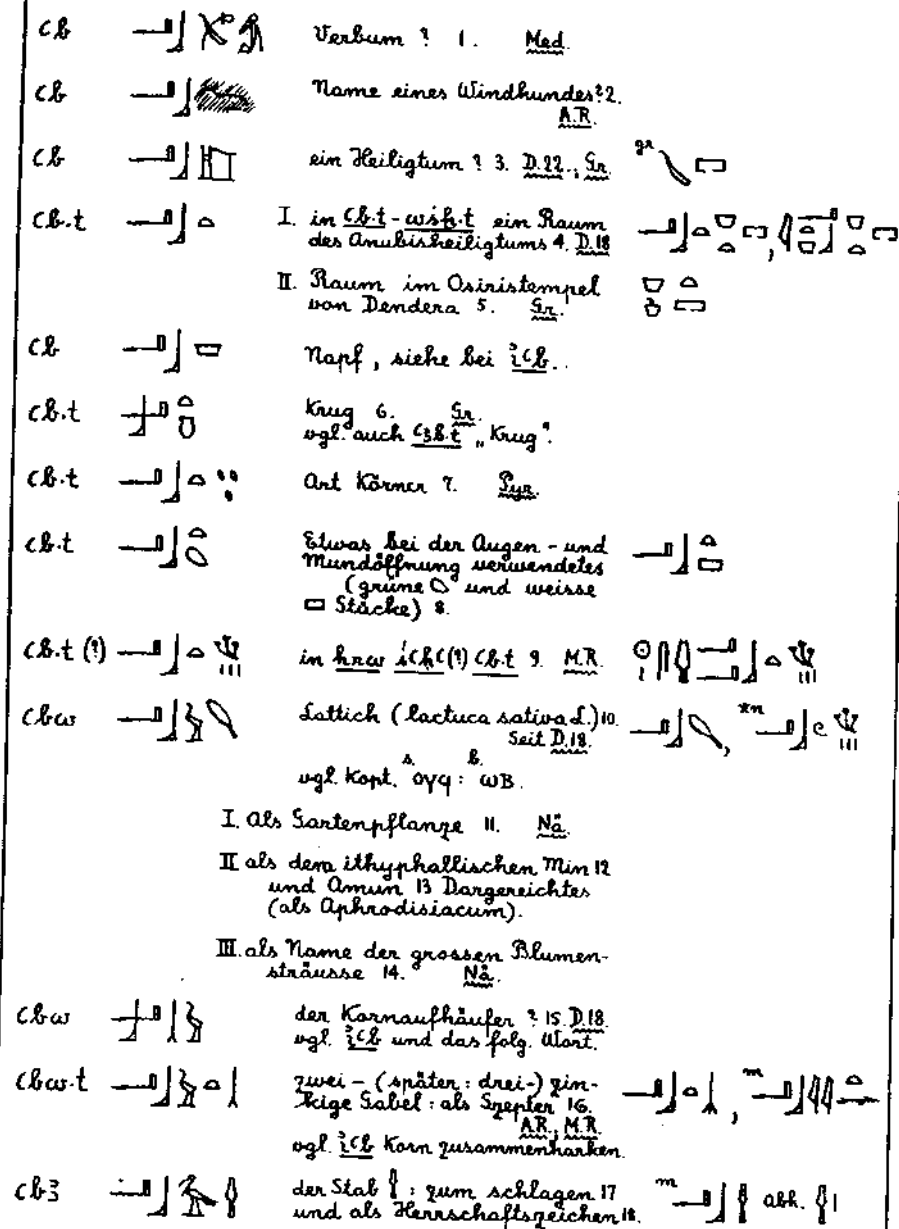 ꜥb Verbum ? 1. Med.
ꜥb Name eines Windhundes? 2.
A.R.
ꜥb ein Heiligtum ? 3. D.22., Gr. gr
ꜥb.t I. in ꜥb.t-wsḫ.t ein Raum
des Anubisheiligtums 4. D.18
II. Raum im Osiristempel
von Dendera 5. Gr.
ꜥb Napf, siehe bei i҆ꜥb.
ꜥb.t Krug 6. Gr.
vgl. auch ꜥꜣb.t „Krug".
ꜥb.t Art Körner 7. Pyr.
ꜥb.t Etwas bei der Augen- und
Mundöffnung verwendetes
(grüne und weisse
Stücke) 8.
ꜥb.t (?) in hrw (?) ꜥb.t 9. M.R.
ꜥbw Lattich (lactuca sativa L.) 10.
Seit D.18. *n
vgl. Kopt. s. ⲟⲩϥ : b. ⲱⲃ.
I. Als Gartenpflanze 11. Nä.
II als dem ithyphallischen Min 12
und Amun 13 Dargereichtes
(als Aphrodisiacum).
III. als Name der grossen Blumen-
sträusse 14. Nä.
ꜥbw der Kornaufhäufer ? 15. D.18.
vgl. i҆ꜥb und das folg. Wort.
ꜥbw.t zwei- (später: drei-) zin-
kige Gabel: als Szepter 16. m
A.R., M.R.
vgl. i҆ꜥb Korn zusammenharken.
ꜥbꜣ der Stab : zum schlagen 17 m abk.
und als Herrschaftszeichen 18.